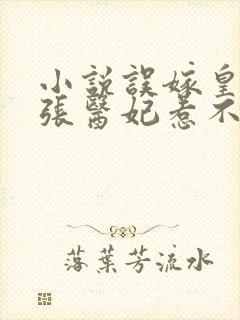 小説誤嫁皇
張醫妃惹不
落葉芳流水